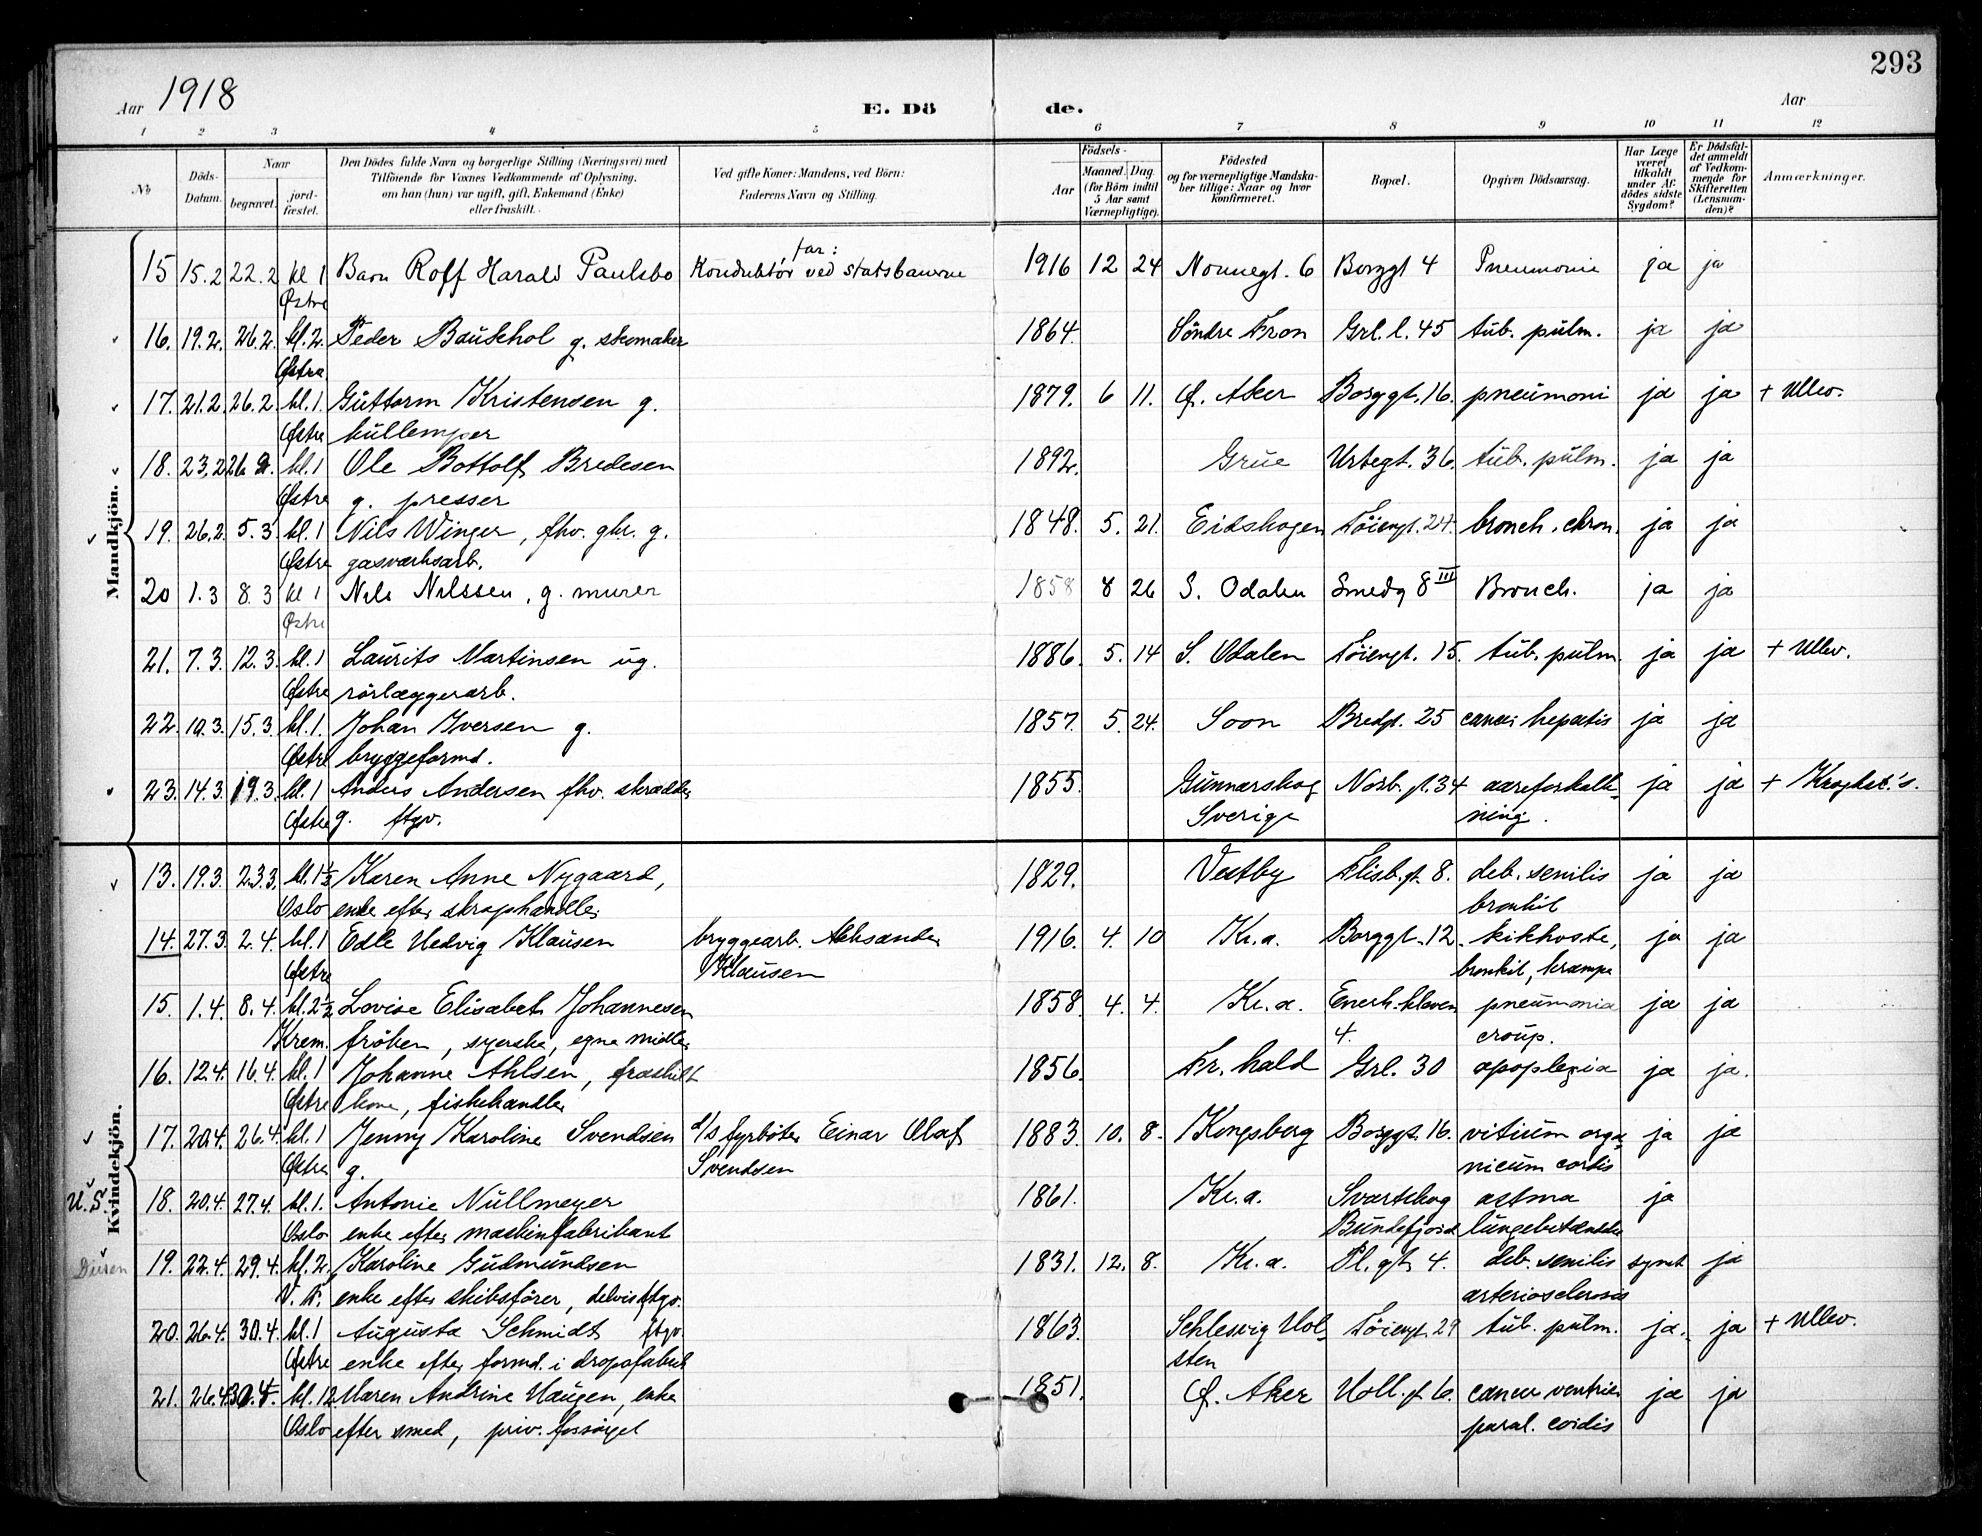 293
Aar 1918
E. Dö de.
Aar
1 2 3 4 5 6 7 8 9 10 11 12
No
Döds-Datum.
Naar
begravet.
jord-fæstet.
Den Dödes fulde Navn og borgerlige Stilling (Næringsvei) med
Tilföiende for Voxnes Vedkommende af Oplysning,
om han (hun) var ugift, gift, Enkemand (Enke)
eller fraskilt.
Ved gifte Koner: Mandens, ved Börn:
Faderens Navn og Stilling.
Födsels-
Aar
Maaned. Dag.
(for Börn indtil
5 Aar samt
Værnepligtige).
Födested
og for værnepligtige Mandska-
ber tillige: Naar og hvor
konfirmeret.
Bopæl.
Opgiven Dödsaarsag.
Har Læge
været
tilkaldt
under Af-
dödes sidste
Sygdom?
Er Dödsfal-
det anmeldt
af Vedkom-
mende for
Skifteretten
(Lensman-
den)?
Anmærkninger.
Mandkjön.
far:
15 15.2 22.2 kl 1 Barn Rolf Harald Paulsbo Konduktör ved statsbanerne 1916 12 24 Nonnegt. 6 Borggt 4 Pneumonie ja ja
Østre
16. 19.2. 26.2. kl. 2. Peder Baukhol g. skomaker 1864. Söndre Fron Grl. l. 45 tub. pulm. ja ja
Østre
17. 21.2. 26.2. kl. 1. Guttorm Kristensen g. 1879. 6 11. Ø. Aker Borggt. 16. pneumoni ja ja + Ullev.
Østre kullemper
18. 23.2 26 2. kl. 1 Ole Bottolf Bredesen 1892. Grue Urtegt. 36. tub. pulm. ja ja
Østre g. presser
19. 26.2. 5.3. kl. 1 Nils Winger, fhv. ghr. g. 1848. 5. 21. Eidskogen Töiengt. 24. bronch. chron. ja ja
Østre gasværksarb.
20 1.3 8.3 kl 1 Nils Nilssen, g. murer 1858 8 26 S. Odalen Smedg 8 III Bronch. ja ja
Østre
21. 7.3. 12.3. kl. 1 Laurits Martinsen ug. 1886. 5. 14 S. Odalen Töiengt. 15. tub. pulm. ja ja + Ullev.
Østre rörlæggerarb.
22. 10.3. 15.3. kl. 1. Johan Iversen g. 1857. 5. 24. Soon Bredgt. 25 cancer hepatis ja ja
Østre bryggeformd.
23. 14.3. 19.3. kl. 1 Anders Andersen fhv. skrædder 1855. Gunnarskog Norb. gt. 34 aareforkalk- ja ja + Krogkst.'s.
Østre g. ftgv. Sverige ning.
Kvindekjön.
13. 19.3. 23.3. kl. 1½ Karen Anne Nygaard, 1829. Vestby Flisb. gt. 8. deb. senilis ja ja
Oslo enke efter skraphandler bronkit
14. 27.3. 2.4. kl. 1 Edle Hedvig Klausen bryggearb. Aleksander 1916. 4. 10 Kr.a. Borggt. 12. kikhoste, ja ja
Østre Klausen bronkit, krampe
15. 1.4. 8.4. kl. 2½ Lovise Elisabeth Johannesen 1858. 4. 4. Kr.a. Enerh. kleven pneumonia ja ja
Krem. fröken, syerske, egne midler 4. croup.
16. 12.4. 16.4. kl. 1 Johanne Ahlsen, fraskilt 1856. Fr.hald Grl. 30 apoplexia ja ja.
Østre kone, fiskehandler
17. 20.4. 26.4. kl. 1 Jenny Karoline Svendsen d/s fyrböter Einar Olaf 1883. 10. 8. Kongsberg Borggt. 16. vitium orga- ja ja
Østre g. Svendsen nicum cordis
U.S. 18. 20.4. 27.4. kl. 1. Antonie Nullmeyer 1861. Kr.a. Svartskog astma ja
Oslo enke efter maskinfabrikant Bundefjord lungebetændelse
Duren 19. 22.4. 29.4. kl. 2. Karoline Gudmundsen 1831. 12. 8. Kr.a. Pl. gt. 4. deb. senilis ja
V. A. enke efter skibsförer, delvis ftgv. arteriosclerosis
20. 26.4. 30.4. kl. 1 Augusta Schmidt ftgv. 1863. Schlesvig Hol- Töiengt. 29 tub. pulm. ja. ja + Ullev.
Østre enke efter formd. i dropsfabrik sten
21. 26.4. 30.4. kl. 12 Maren Andrine Haugen, enke 1851. Ø. Aker Holl. gt 6. cancer ventric. ja ja
Oslo efter smed, priv. forsörget paral. cordis